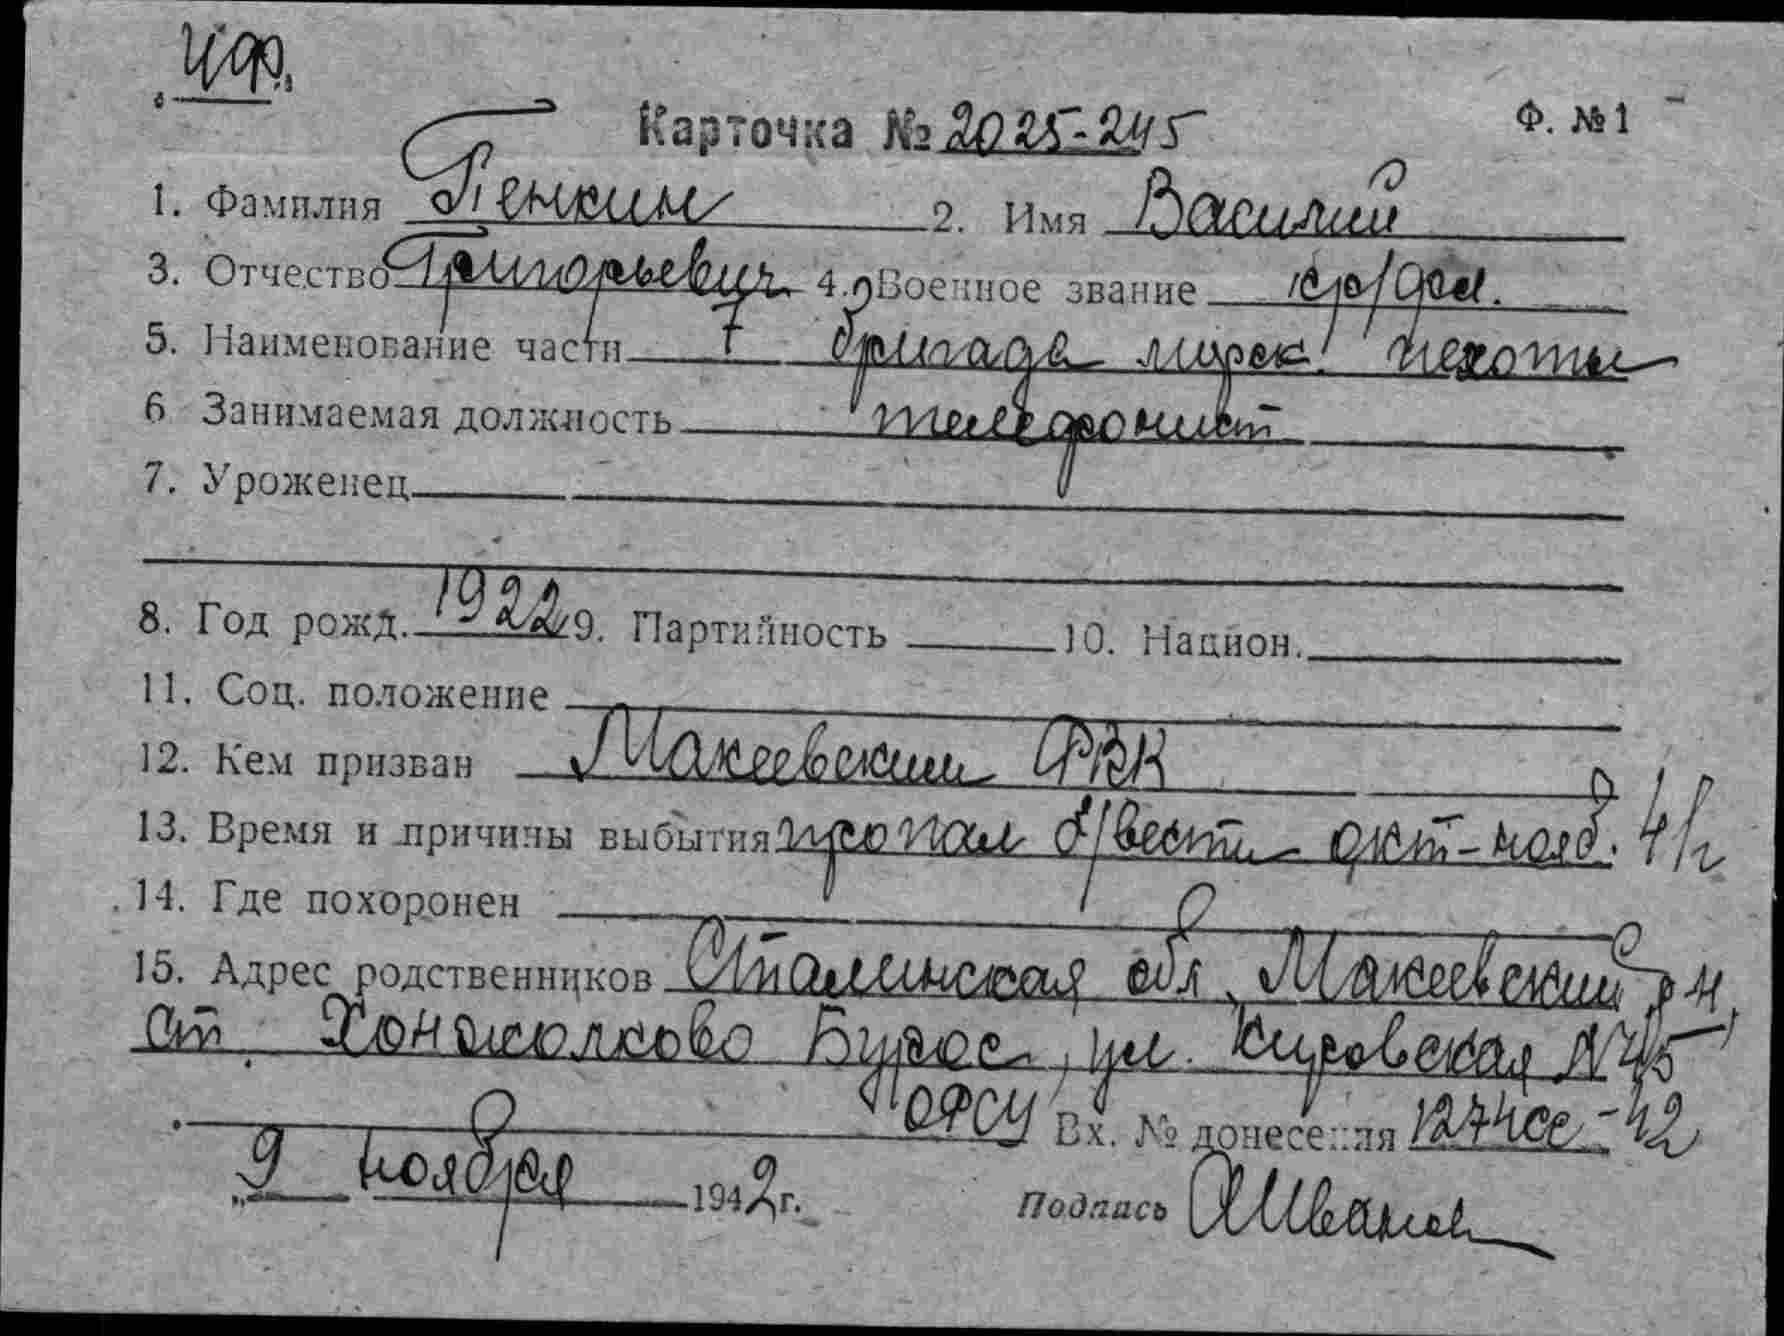 ЧФ.
Карточка № 2025-245 Ф. №1
1. Фамилия Пенкин 2. Имя Василий
3. Отчество Григорьевич 4. Военное звание кр/фл.
5. Наименование части 7 бригада морск. пехоты
6 Занимаемая должность телефонист
7. Уроженец
8. Год рожд. 1922 9. Партийность 10. Национ.
11. Соц. положение
12. Кем призван Макеевским РВК
13. Время и причины выбытия пропал б/вести окт-нояб. 41г
14. Где похоронен
15. Адрес родственников Сталинская обл, Макеевский р-н,
ст. Ханжолково Бурос, ул. Кировская N 45
ОРСУ Вх. № донесения 1274сс-42
"9 ноября 1942г. Подпись АИванов